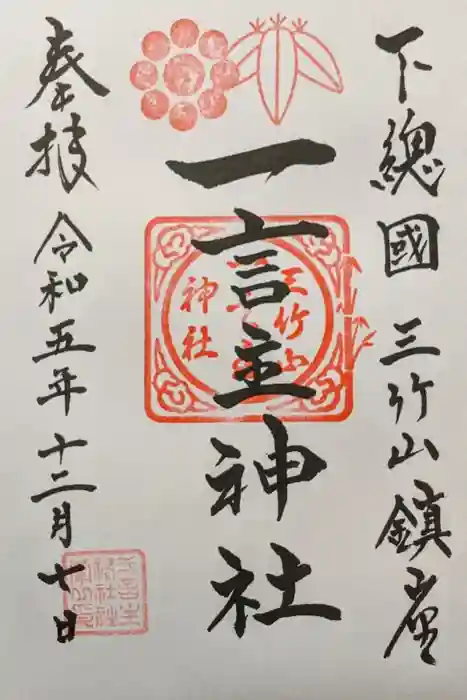 下總國 三竹山鎮座
一言主神社
三竹山
神社
奉拝 令和五年十二月七日